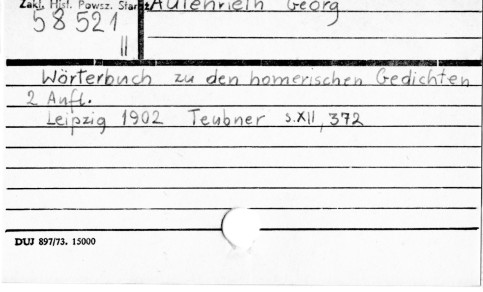 Zakł. Hist. Powsz. Staroż. Autenrieth Georg
58521
II
Wörterbuch zu den homerischen Gedichten
2 Aufl.
Leipzig 1902 Teubner s.XII, 372
DUJ 897/73. 15000